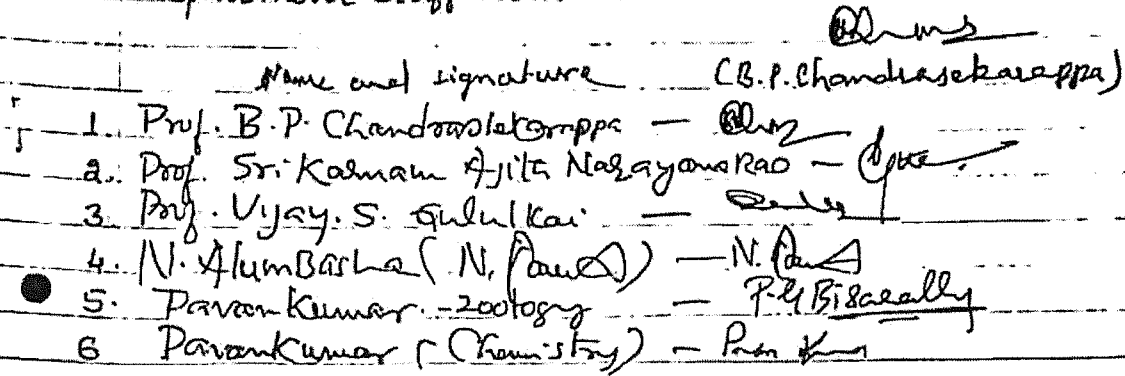 Name and signature (B.P. Chandrasekarappa)
1. Prof. B.P. Chandrasekarappa —
2. Prof. Sri Karnam Ajita Narayana Rao —
3 Prof. Vijay. S. Gululkai —
4. N. AlumBasha ( N. ) — N.
5. Pavan Kumar. - Zoology — P.G Bisarally
6 Pavankumar ( Chemistry) —